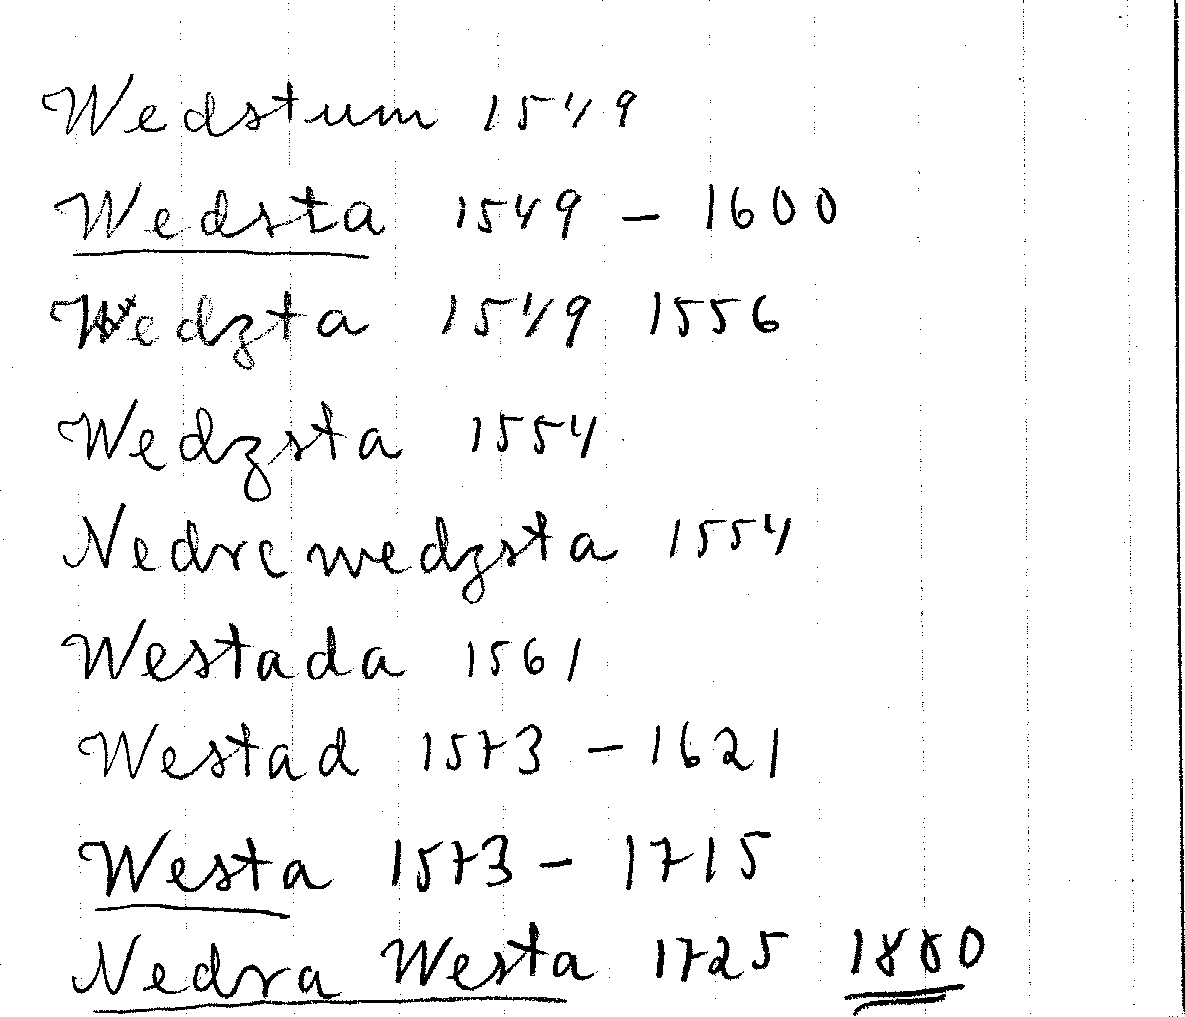 Wedstum 1549
Wedsta 1549 – 1600
Wedzta 1549 1556
Wedzsta 1554
Nedre wedzsta 1554
Westada 1561
Westad 1573 – 1621
Westa 1573 – 1715
Nedra Westa 1725 1880